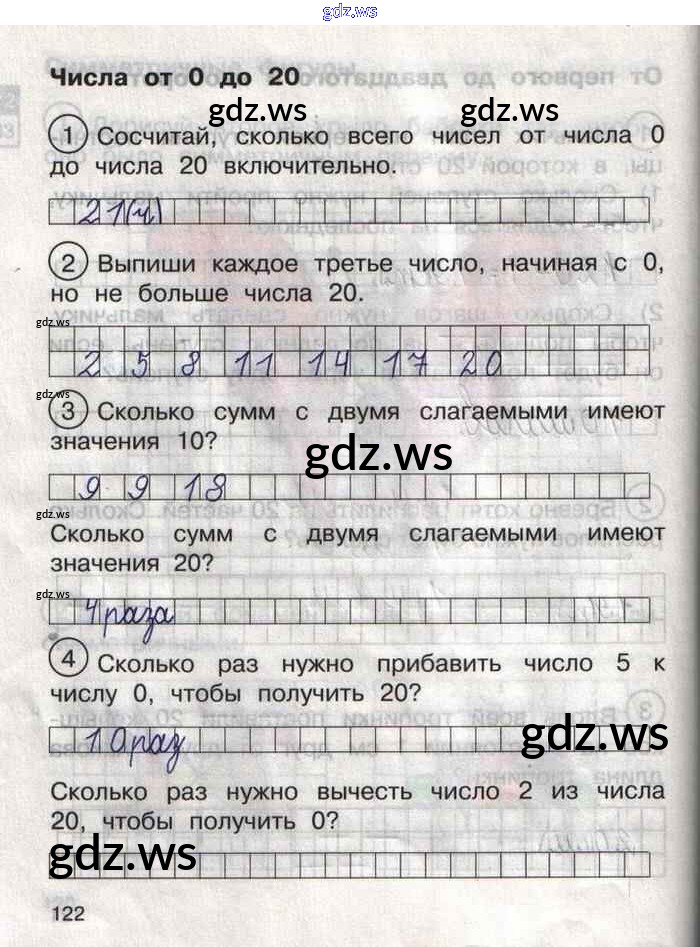 gdz.ws
Числа от 0 до 20
gdz.ws gdz.ws
1 Сосчитай, сколько всего чисел от числа 0
до числа 20 включительно.
21(ч)
2 Выпиши каждое третье число, начиная с 0,
но не больше числа 20.
gdz.ws
2 5 8 11 14 17 20
gdz.ws
3 Сколько сумм с двумя слагаемыми имеют
значения 10?
gdz.ws
9 9 18
gdz.ws
Сколько сумм с двумя слагаемыми имеют
значения 20?
gdz.ws
4 раза
4 Сколько раз нужно прибавить число 5 к
числу 0, чтобы получить 20?
gdz.ws
10 раз
Сколько раз нужно вычесть число 2 из числа
20, чтобы получить 0?
gdz.ws
122